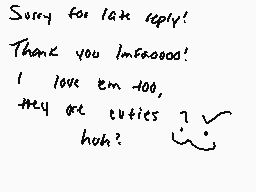 Sorry for late reply!
Thank you lmfaoooo!
I love em too,
they are cuties
huh?